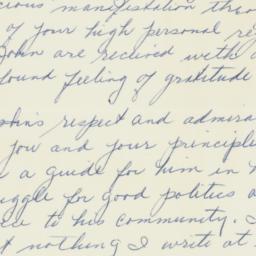 cious manifestation thro
of your high personal re
John are received with a
found feeling of gratitude
ohn's respect and admira
you and your principle
a guide for him in h
uggle for good politics a
ce to his community. I
t nothing I write at